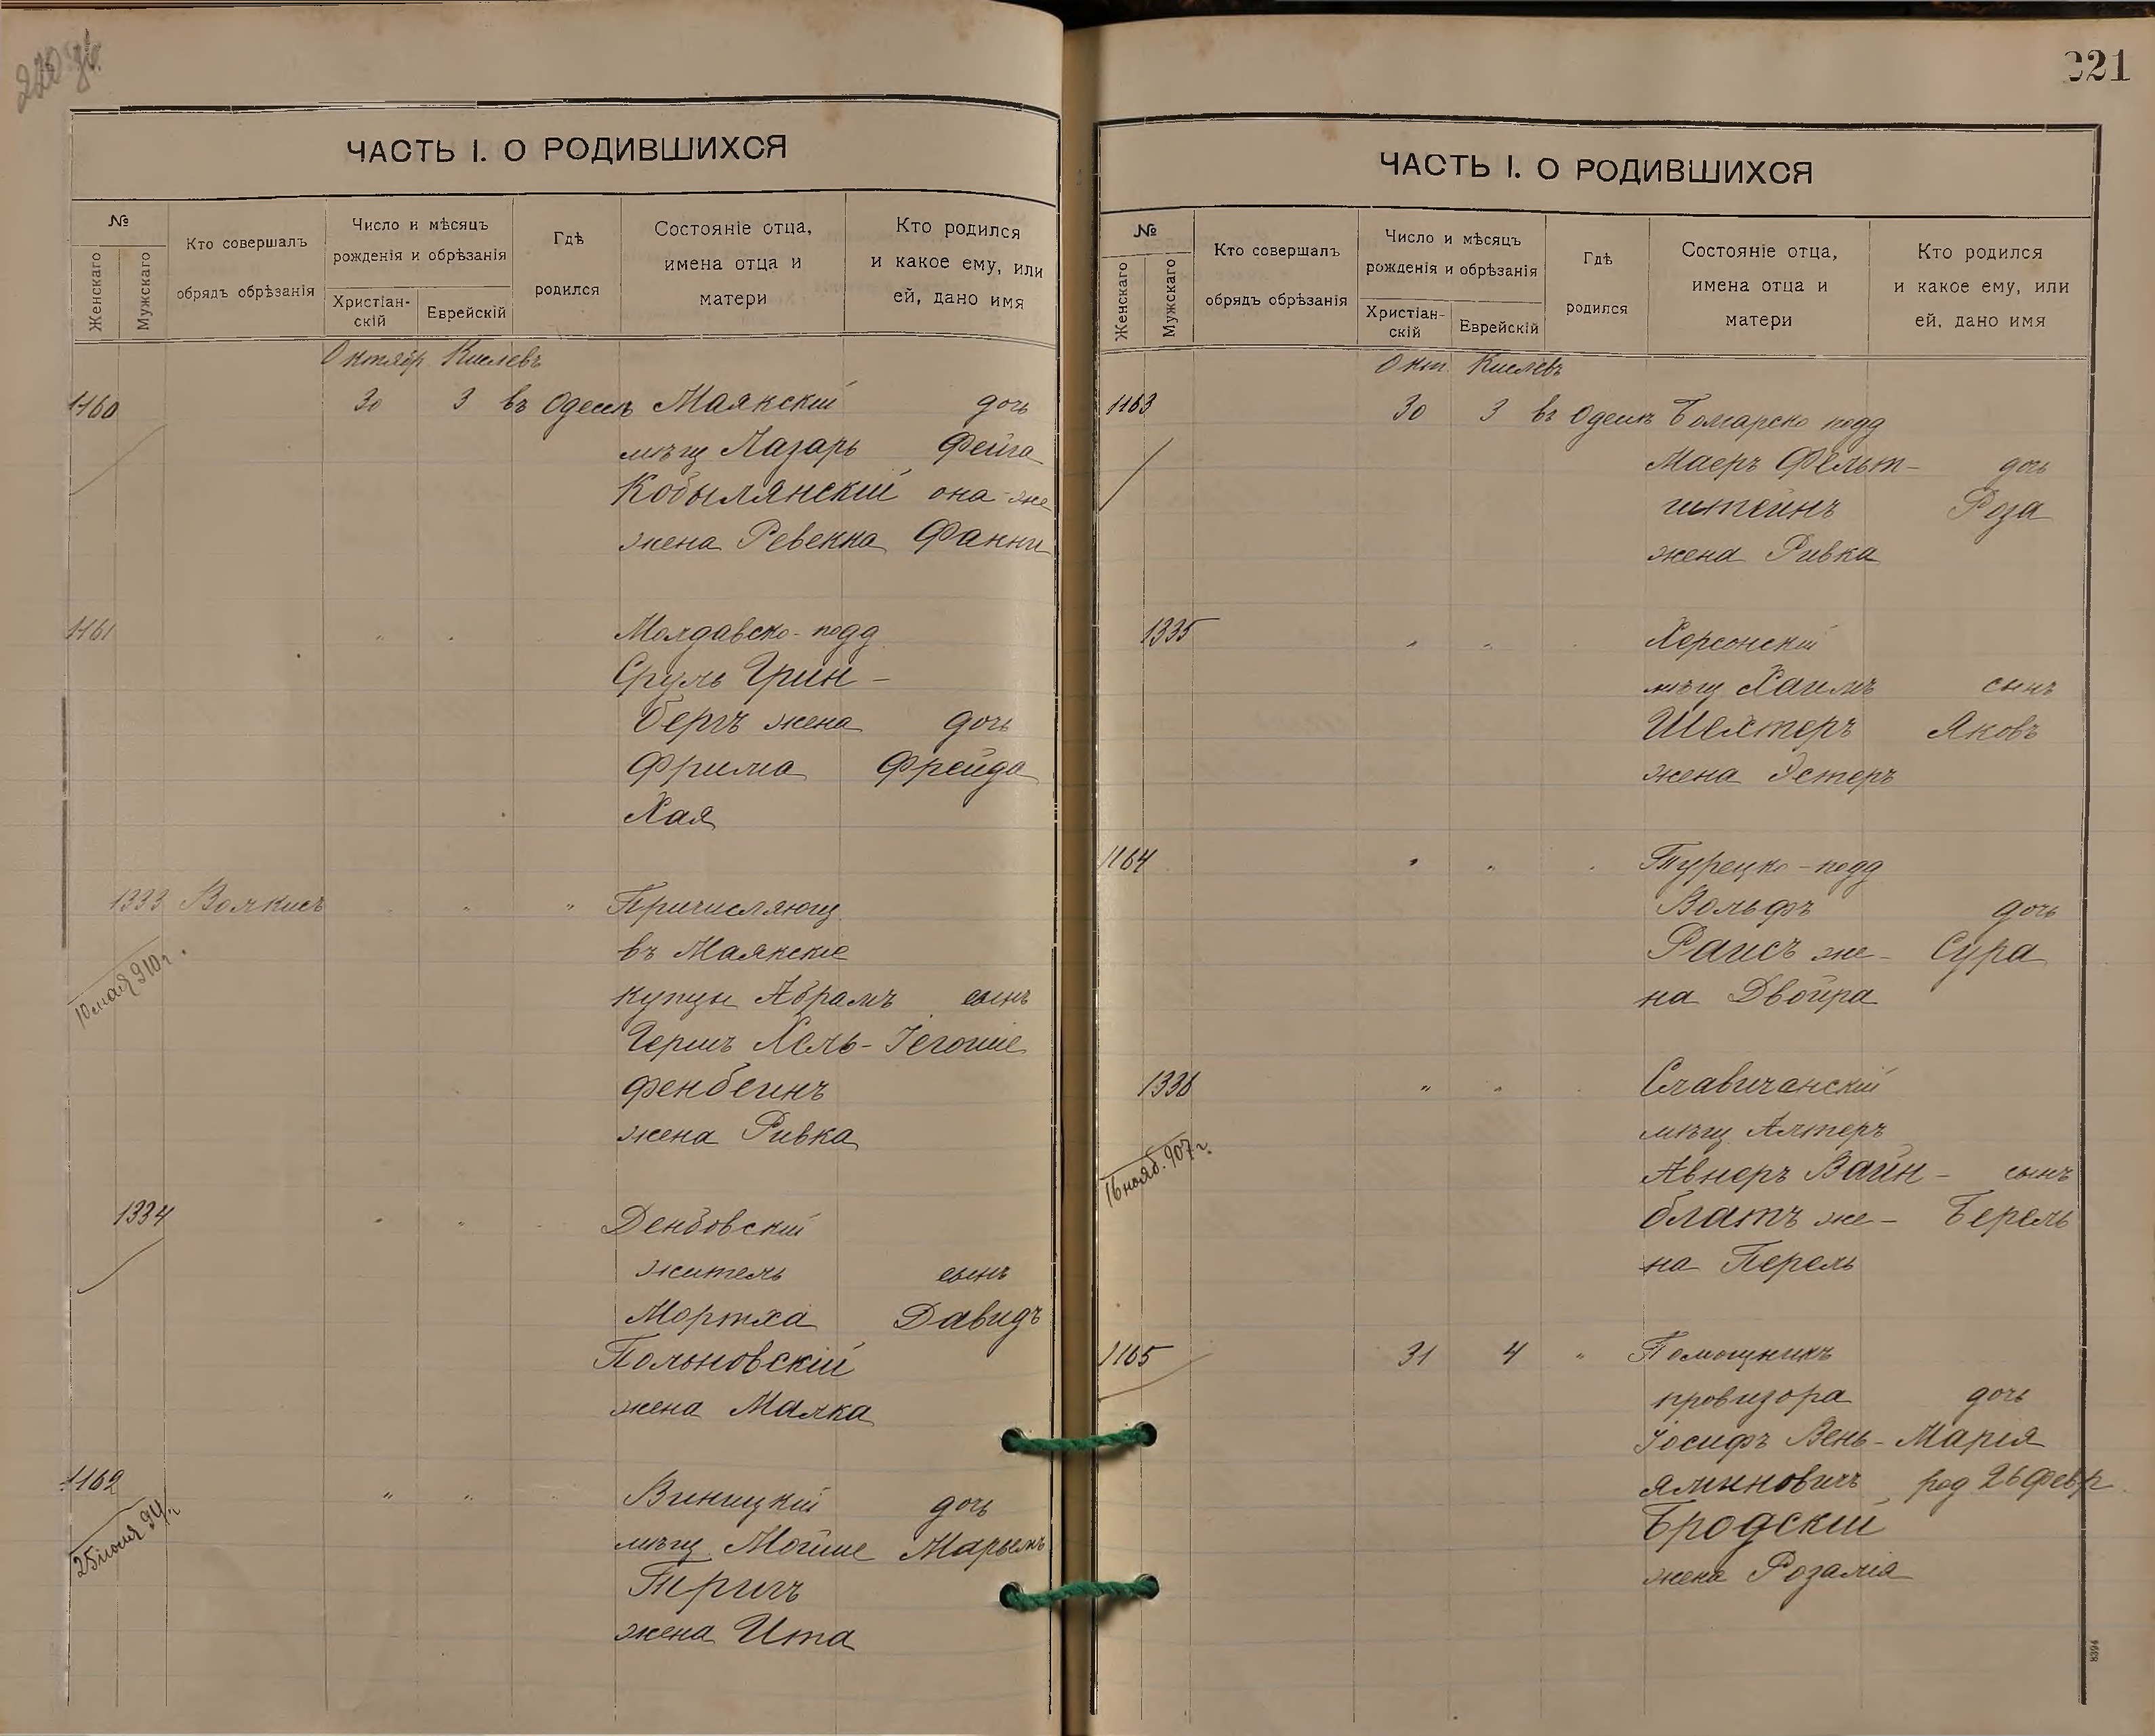 220 об.
ЧАСТЬ I. О РОДИВШИХСЯ
№
Женскаго
Мужскаго
Кто совершалъ
обрядъ обрѣзанія
Число и мѣсяцъ
рожденія и обрѣзанія
Христіан-
скій
Еврейскій
Гдѣ
родился
Состояніе отца,
имена отца и
матери
Кто родился
и какое ему, или
ей, дано имя
Октябр Кислевъ
1160 30 3 въ Одессѣ Маякскій дочь
мѣщ Лазарь Фейга
Кобылянскій она-же
жена Ревекка Фанни
1161 " " Молдавско-подд
Сруль Грин-
бергъ жена дочь
Фрима Фрейда
Хая
1333 Волкисъ " " " Причисляющ.
въ Маякскіе
10 мая 910 г.
купцы Абрамъ сынъ
Гершъ Хель- Іегошіе
фенбеинъ
жена Ривка
1334 " " " Денбовскій
житель сынъ
Мортха Давидъ
Польновскій
жена Малка
1162 " " Виницкій дочь
25 іюля 94 г.
мѣщ Мойше Марьемъ
Тригъ
жена Ита
221
ЧАСТЬ I. О РОДИВШИХСЯ
№
Женскаго
Мужскаго
Кто совершалъ
обрядъ обрѣзанія
Число и мѣсяцъ
рожденія и обрѣзанія
Христіан-
скій
Еврейскій
Гдѣ
родился
Состояніе отца,
имена отца и
матери
Кто родился
и какое ему, или
ей, дано имя
Окт. Кислевъ
1163 30 3 въ Одессѣ Болгарско подд
Маеръ Фельт- дочь
штейнъ Роза
жена Ривка
1335 " " Херсонскій
мѣщ Хаимъ сынъ
Шехтеръ Яковъ
жена Эстеръ
1164 " " " Турецко-подд
Вольфъ дочь
Раисъ же- Сура
на Двойра
1336 " " " Славичанскій
мѣщ Алтеръ
16 нояб. 907 г.
Авнеръ Вайн- сынъ
блатъ же- Берель
на Перель
1165 31 4 " Помощникъ
провизора дочь
Іосифъ Вень- Марія
яминовичъ род 26 февр.
Бродскій
жена Розалія
8394